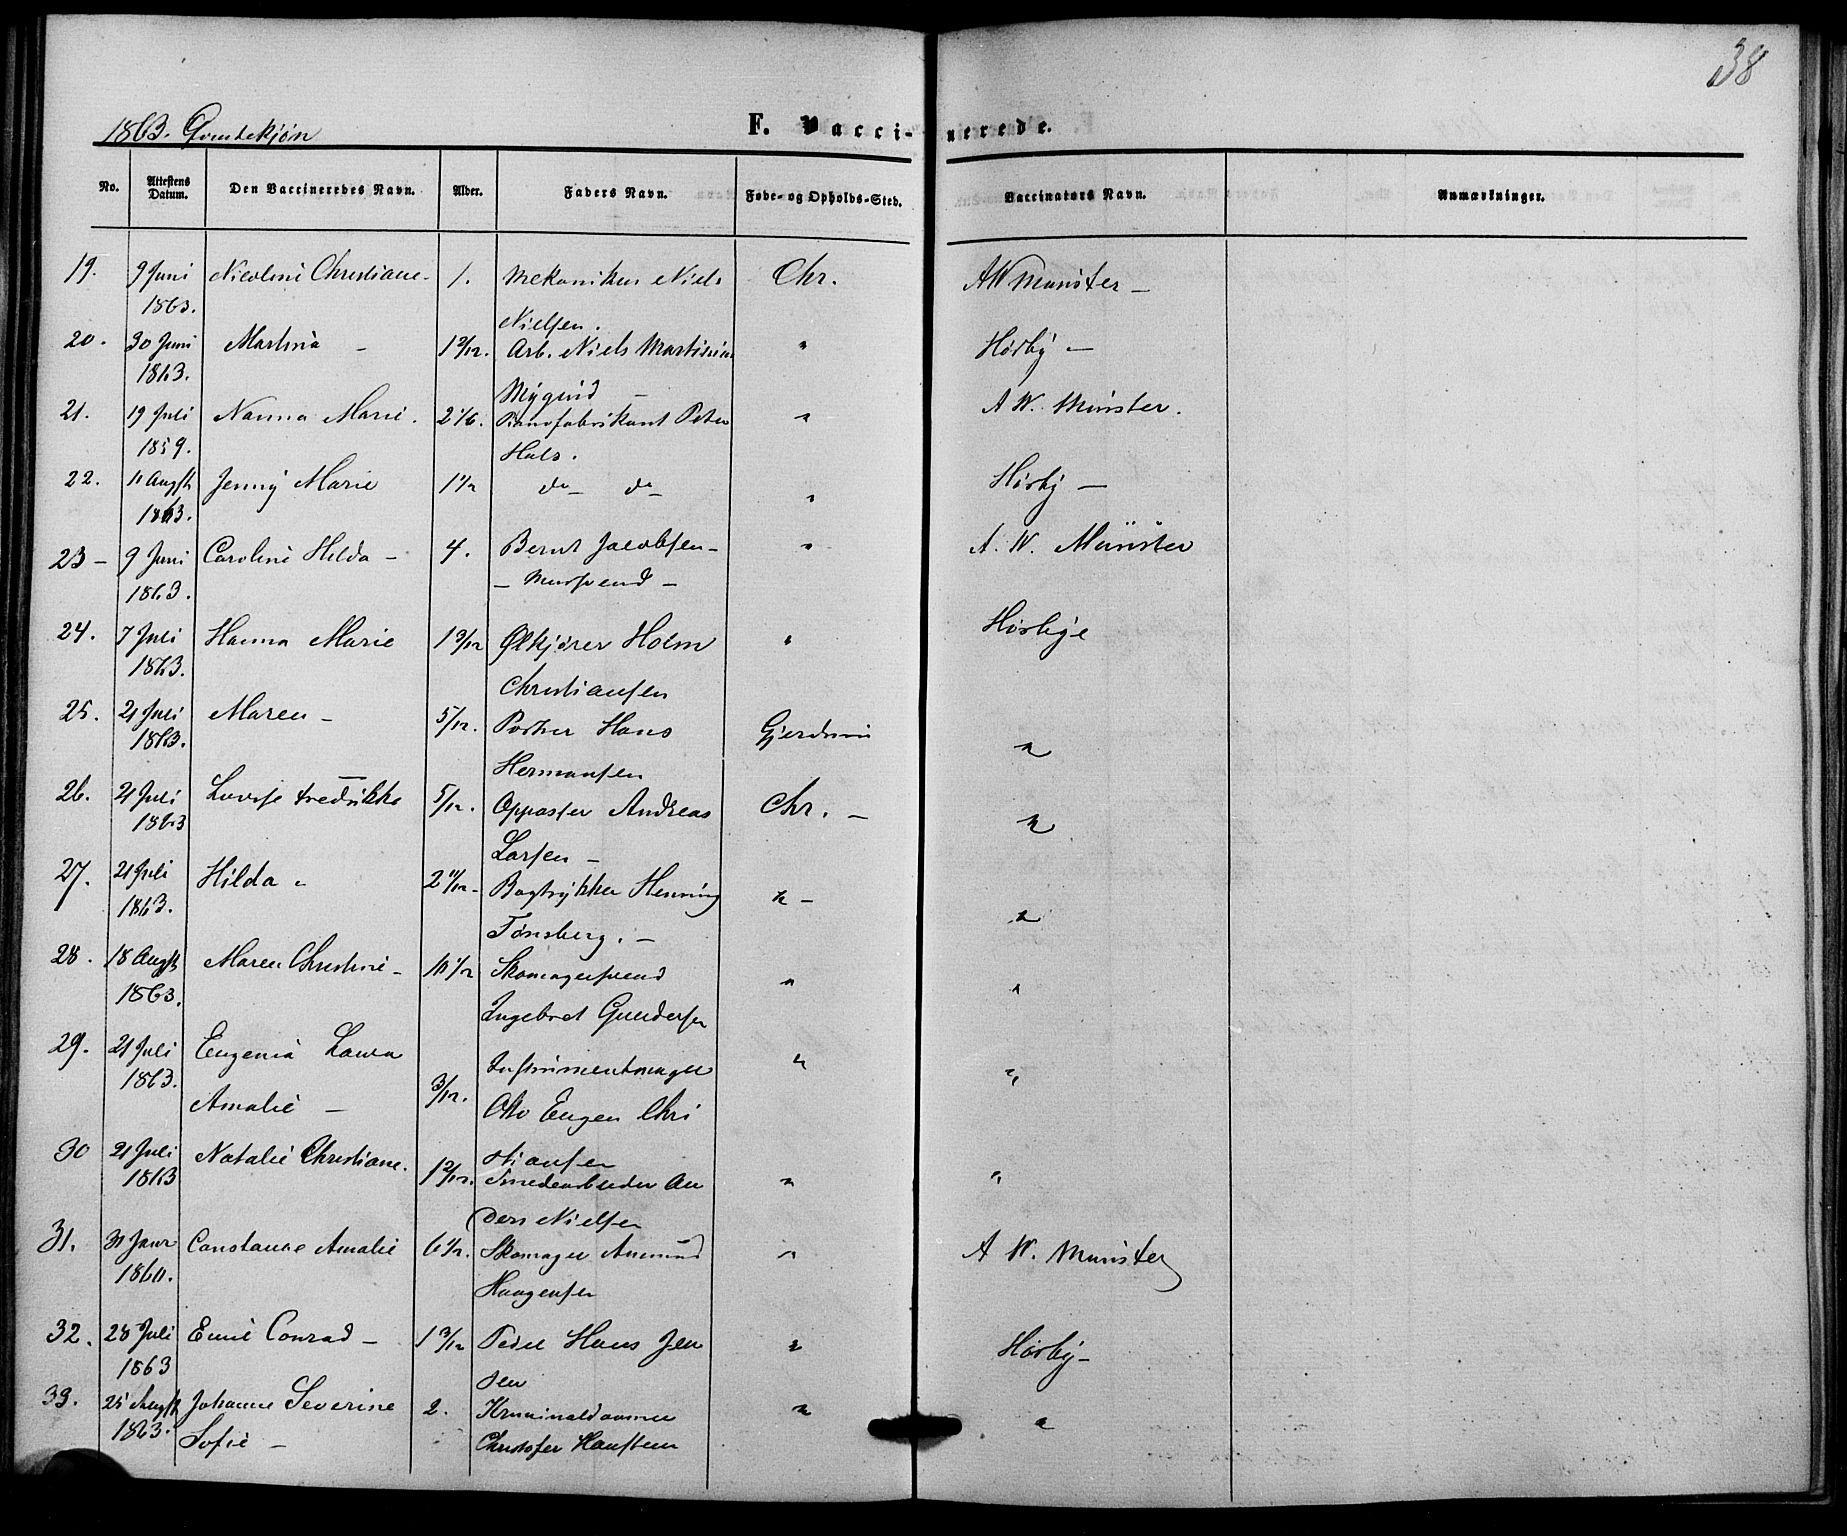 38
1863. Qvindekjøn
F. Vaccinerede.
No. Attestens Datum. Den Vaccineredes Navn. Alder. Faders Navn. Føde- og Opholds-Sted. Vaccinators Navn. Anmærkninger.
19. 9 Juni Nicoline Christiane - 1. Mekanikus Niels Chr. AW Munster -
1863. Nielsen.
20. 30 Juni Martina - 1 9/12. Arb. Niels Martinius " Hörby -
1863. Mÿgind -
21. 19 Juli Nanna Marie. 2 1/6. Pianofabrikant Peter " A W. Münster.
1859. Hals.
22. 11 Augst Jenny Marie 1 1/2 do do " Hörby -
1863.
23 - 9 Juni Caroline Hilda - 4. Bernt Jacobsen - " A. W. Münster
1863. - Mursvend -
24. 7 Juli Hanna Marie 1 9/12 Ølkjører Holm " Hörbye
1863. Christiansen
25. 21 Juli Maren - 5/12. Portner Hans Gjerdrum "
1863. Hermansen
26. 21 Juli Lovise Fredrikke 5/12. Oppasser Andreas Chr. - "
1863 Larsen -
27. 21 Juli Hilda " 2 11/12 - Bogtrykker Henning " - "
1863. Tönsberg. -
28. 18 Augst Maren Christine - 10 1/2 Skomagersvend " "
1863. Ingebret Gundersen
29. 21 Juli Eugenia Laura Instrumentmager " "
1863. Amalie - 3/12. Otto Eugen Chri
stiansen
30 21 Juli Natalie Christiane. 1 2/12. Smedearbeider An " "
1863 ders Nielsen
31. 31 Janr Constance Amalie 6 1/2. Skomager Anmund " A W. Munster
1860. Haagensen
32. 28 Juli Emil Conrad - 1 3/12 Pedel Hans Jen " Hörby -
1863 sen
33. 25 Augst Johanne Severine 2. Kriminaldommer " "
1863. Sofie - Christofer Hansteen